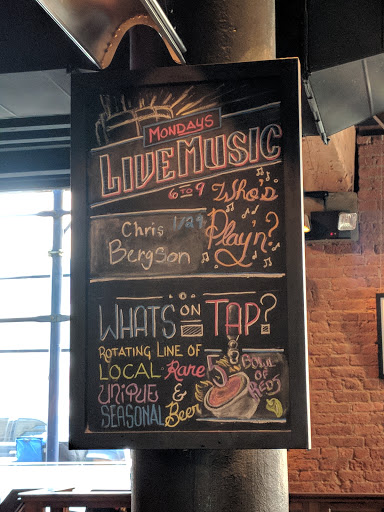 MONDAYS
LIVE MUSIC
6 TO 9 Who's
Play'n?
1/29
Chris
Bergson
WHATS ON TAP?
ROTATING LINE OF
LOCAL Rare
UNIQUE &
SEASONAL Beer
5$
BOWL OF